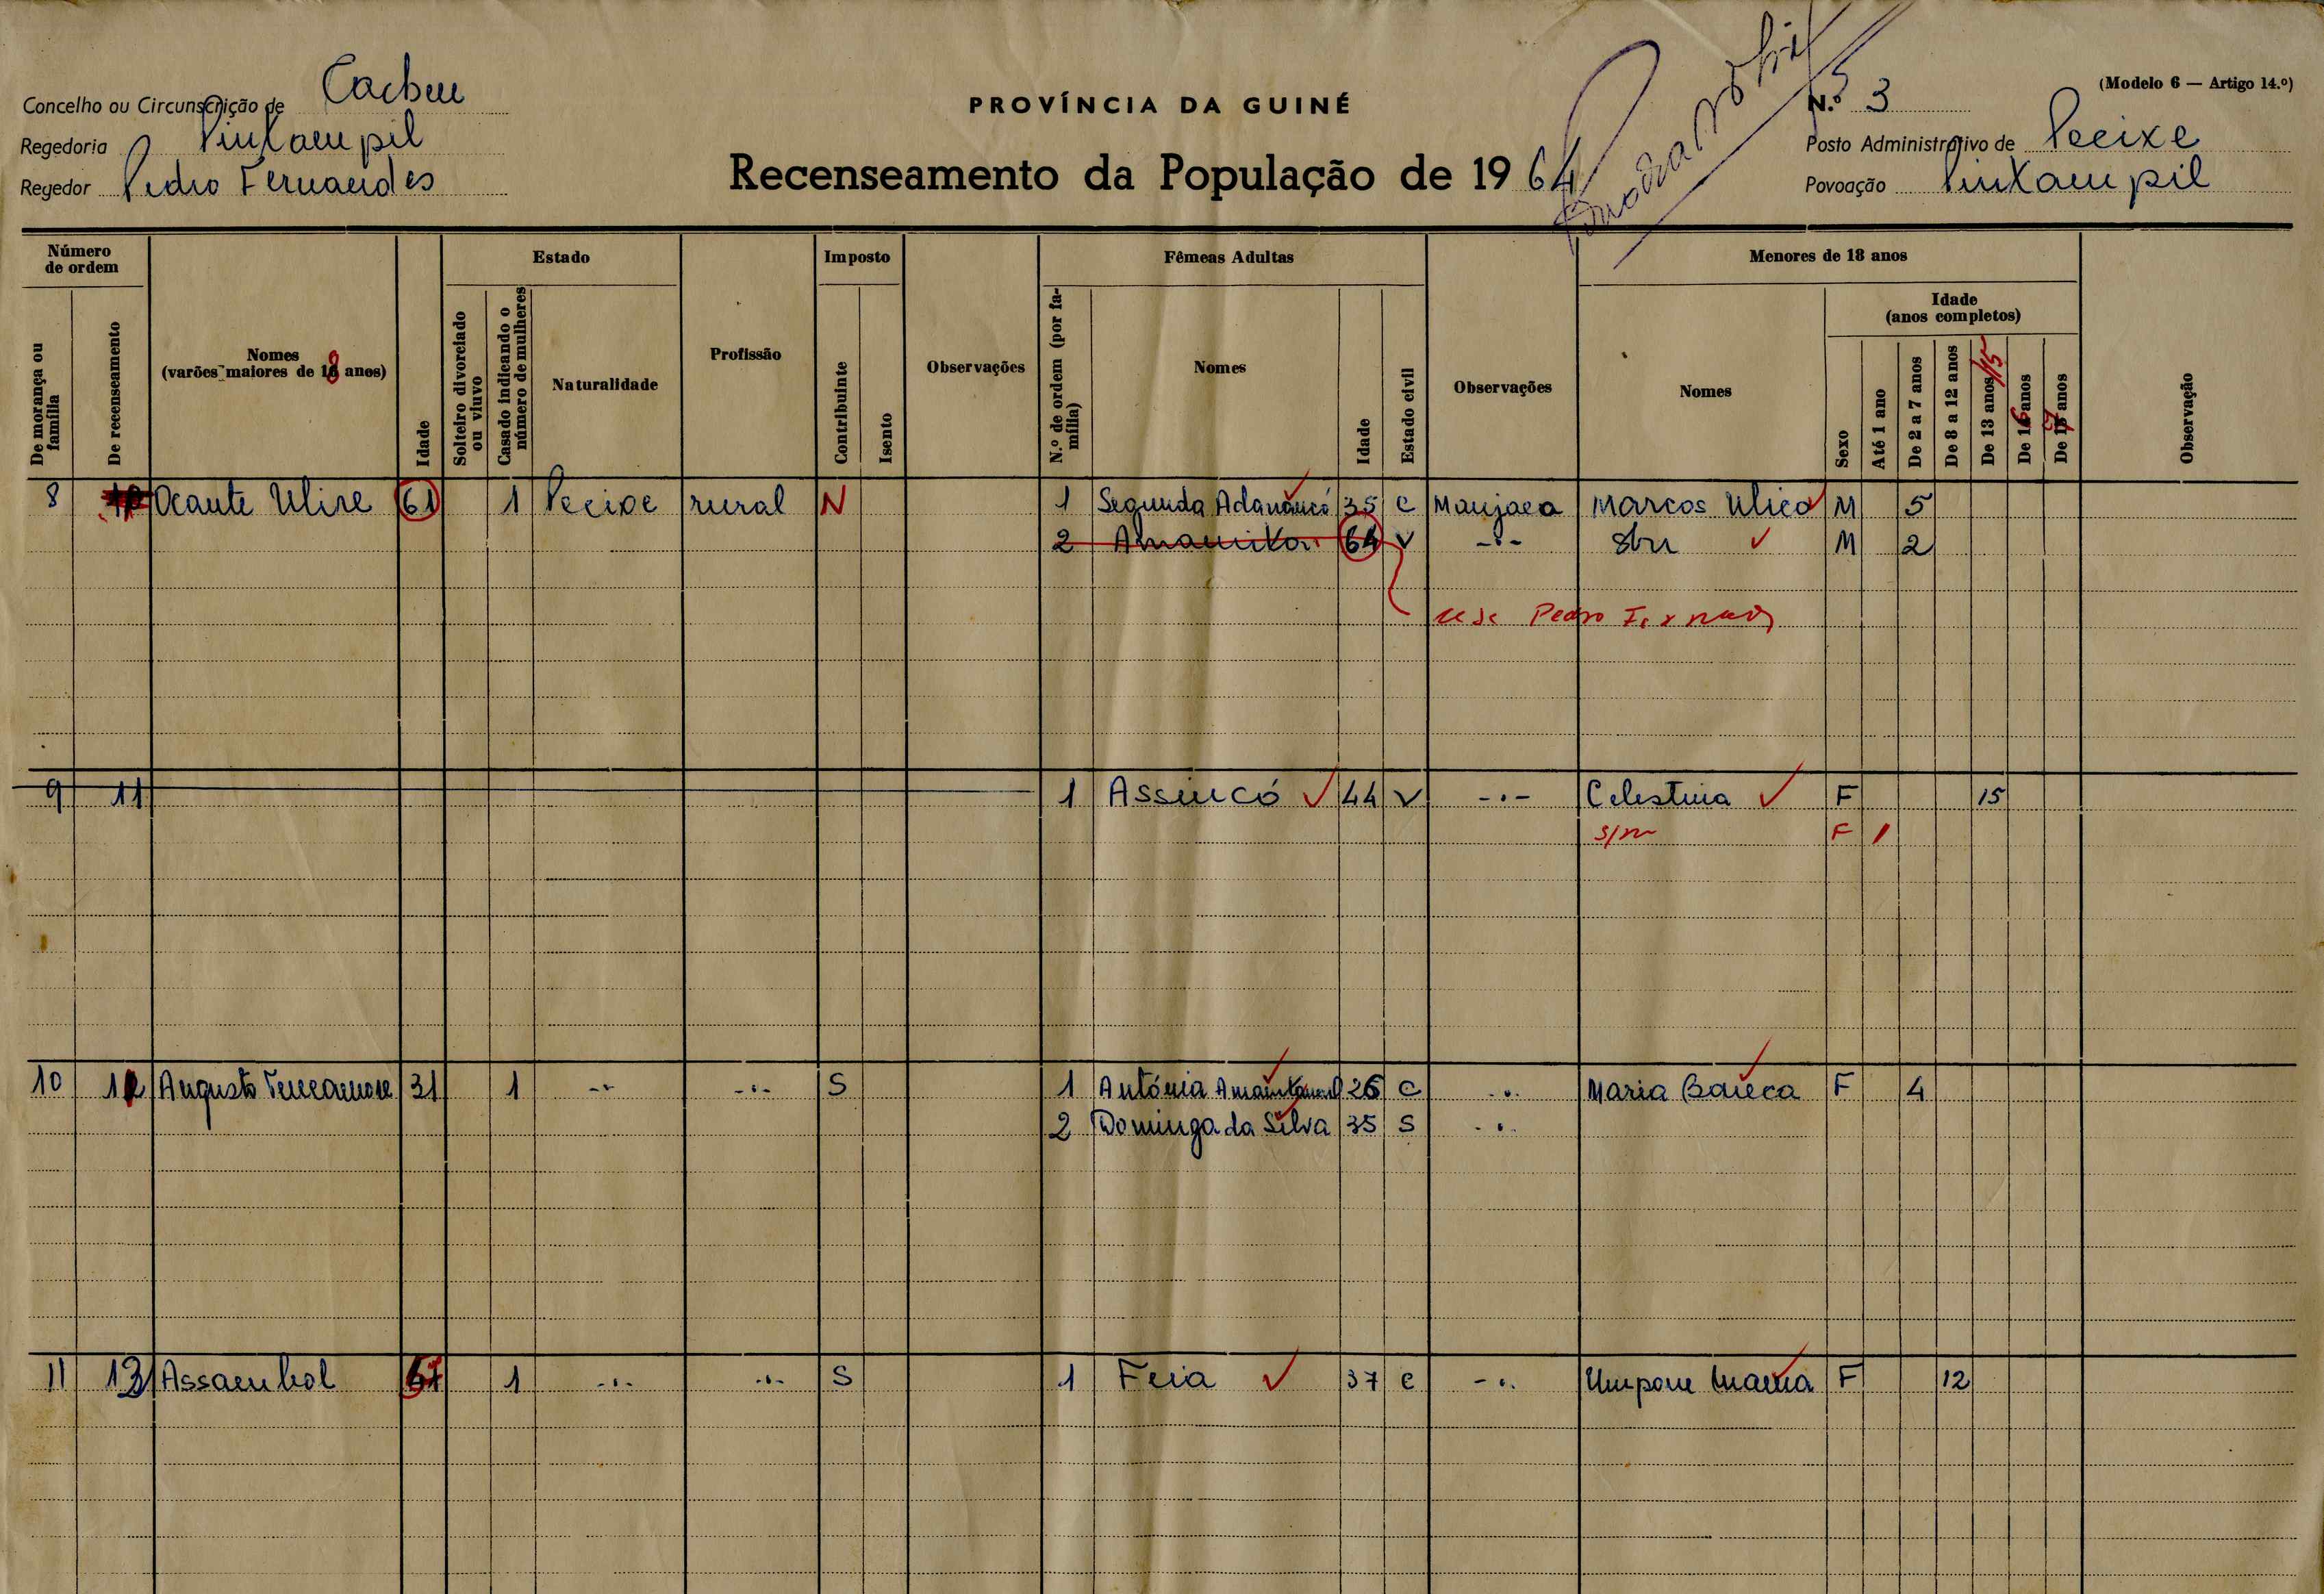 Concelho ou Circunscrição de Cacheu
Regedoria Pintampil
Regedor Pedro Fernandes
PROVÍNCIA DA GUINÉ
Recenseamento da População de 1964
(Modelo 6 — Artigo 14.º)
N.º 3
Posto Administrativo de Pecixe
Povoação Pintampil
Número de ordem
De morança ou família
De recenseamento
Nomes
(varões maiores de 18 anos)
Idade
Estado
Solteiro divorciado ou viuvo
Casado indicando o número de mulheres
Naturalidade
Profissão
Imposto
Contribuinte
Isento
Observações
Fêmeas Adultas
N.º de ordem (por família)
Nomes
Idade
Estado civil
Observações
Menores de 18 anos
Nomes
Sexo
Idade
(anos completos)
Até 1 ano
De 2 a 7 anos
De 8 a 12 anos
De 13 anos/15
De 16 anos
De 17 anos
Observação
8 Ocante Ulire 61 1 Pecixe rural N 1 Segunda 35 C Manjaca Marcos M 5
2 64 V -·- M 2
Pedro
9 11 1 Assincó 44 V -·- Celestina F 15
s/n F 1
10 12 Augusto 31 1 -·- -·- S 1 Antónia 26 C -·- Maria F 4
2 Dominga da Silva 35 S -·-
11 13 1 -·- -·- S 1 Feia 37 C -·- F 12